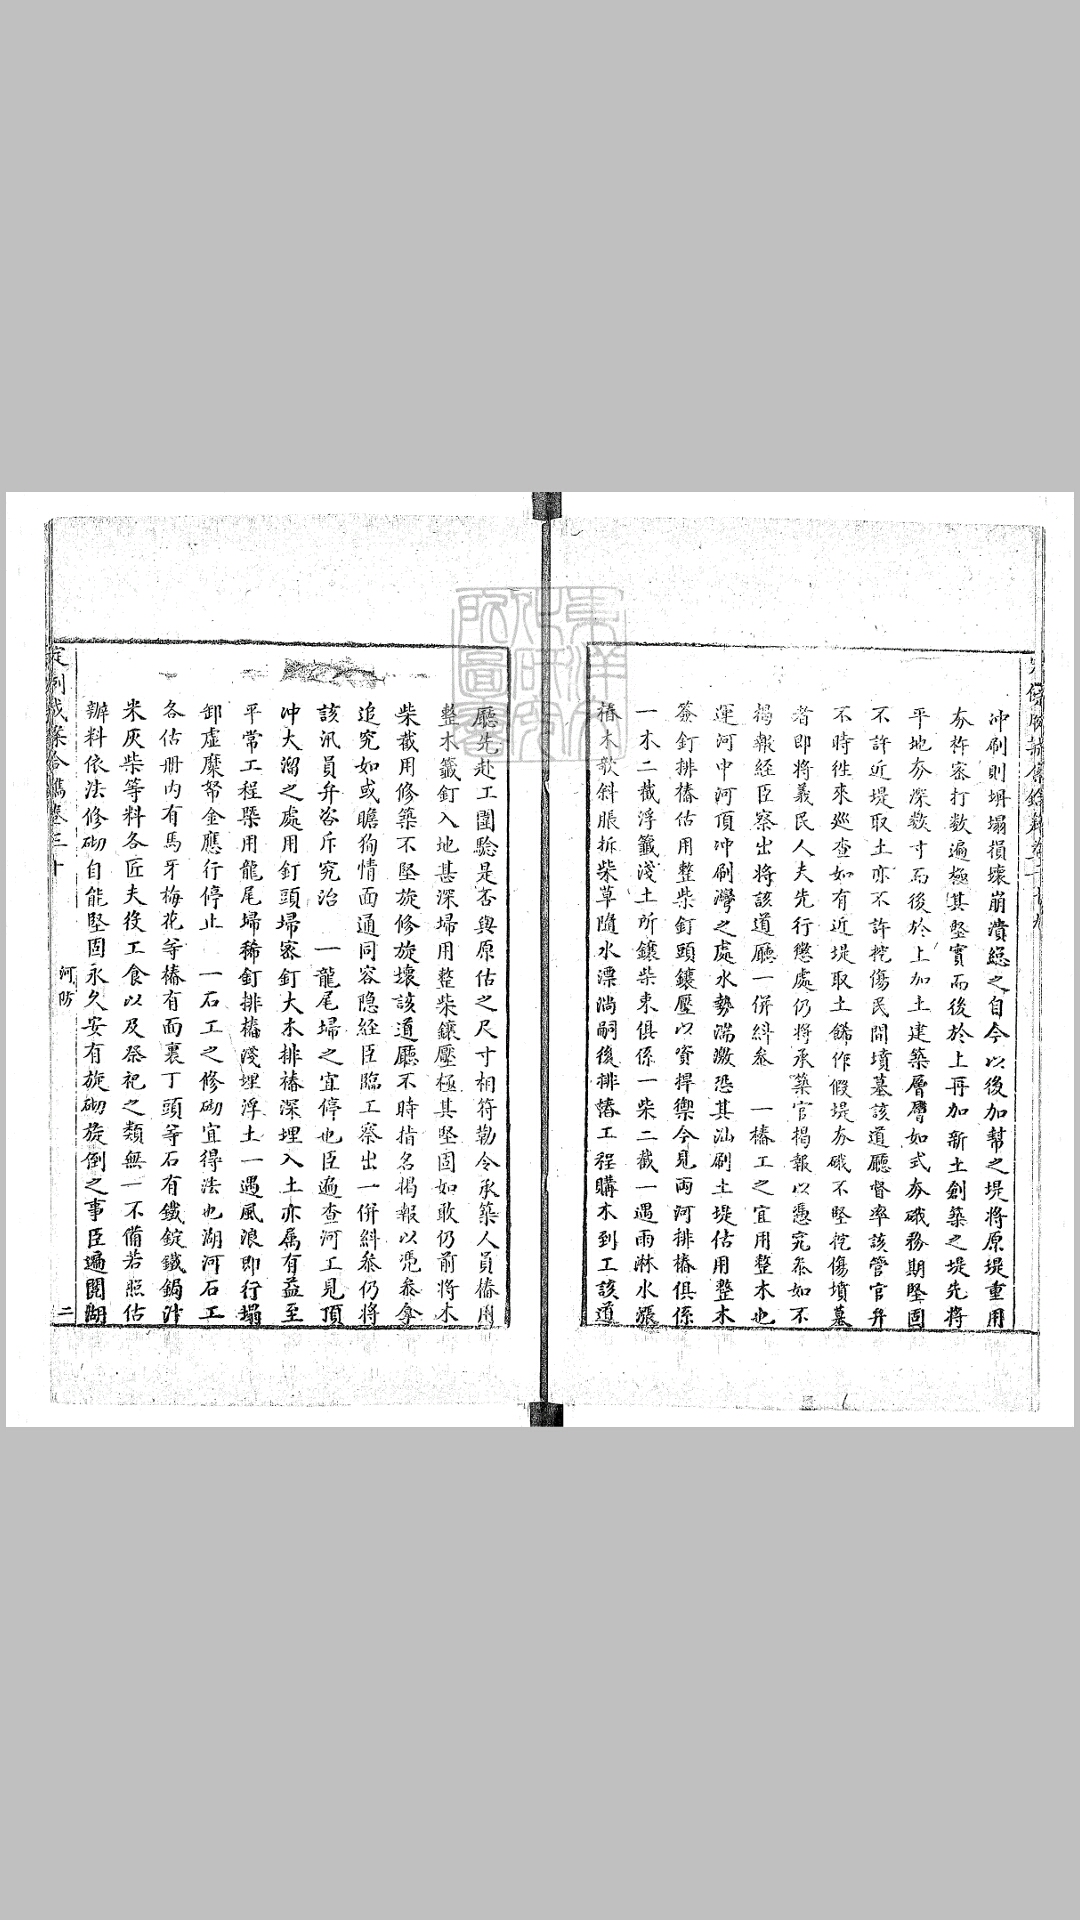 冲刷則坍塌損壞崩潰總之自今以後加幫之堤將原堤重用
夯杵密打数遍極其堅實而後於上再加新土創築之堤先將
平地夯深数寸而後於上加土建築層層如式夯硪務期堅固
不許近堤取土亦不許挖傷民間墳墓該道廳督率該管官弁
不時徃來廵查如有近堤取土餙作假堤夯硪不堅挖傷墳墓
者即將義民人夫先行懲處仍將承築官揭報以憑究叅如不
揭報經臣察出將該道廳一併糾叅　一樁工之宜用整木也
運河中河頂冲刷灣之處水勢湍激恐其汕刷土堤估用整木
簽釘排樁估用整柴釘頭鑲壓以資捍禦今見兩河排樁俱係
一木二截浮籤淺土所鑲柴束俱係一柴二截一遇雨淋水漲
樁木欹斜脹拆柴草隨水漂淌嗣後排樁工程購木到工該道
廳先赴工圍驗是否與原估之尺寸相符勒令承築人員樁用
整木籤釘入地甚深埽用整柴鑲壓極其堅固如敢仍前將木
柴截用修築不堅旋修旋壞該道廳不時指名揭報以凴叅拿
追究如或瞻狥情面通同容隐経臣臨工察出一併糾叅仍將
該汛員弁咨斥究治　一龍尾埽之宜停也臣遍查河工見頂
冲大溜之處用釘頭埽密釘大木排樁深埋入土亦属有益至
平常工程槩用龍尾埽稀釘排樁淺埋浮土一遇風浪即行塌
卸虛糜帑金應行停止　一石工之修砌宜得法也湖河石工
各估册内有馬牙梅花等樁有面裏丁頭等石有鐵錠鐵鍋汁
米灰柴等料各匠夫役工食以及祭祀之類無一不備若照估
辦料依法修砌自能堅固永久安有旋砌旋倒之事臣遍閱湖
定例成案合鐫卷三十
河防
二